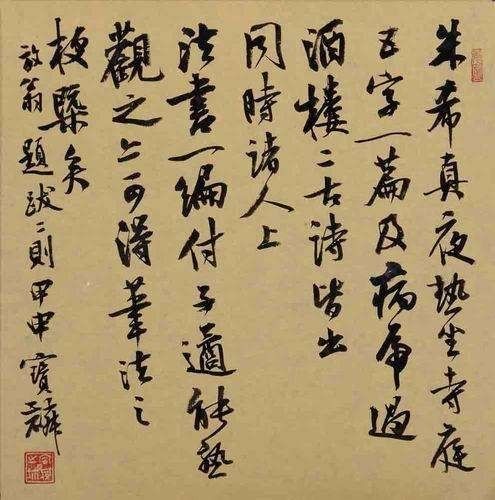 朱希真夜熱坐寺庭
五字一篇及病虎過
酒樓二古詩皆出
同時諸人上
法書一編付子遹能熟
觀之亦可得筆法之
梗槩矣
放翁題跋二則甲申寶麟